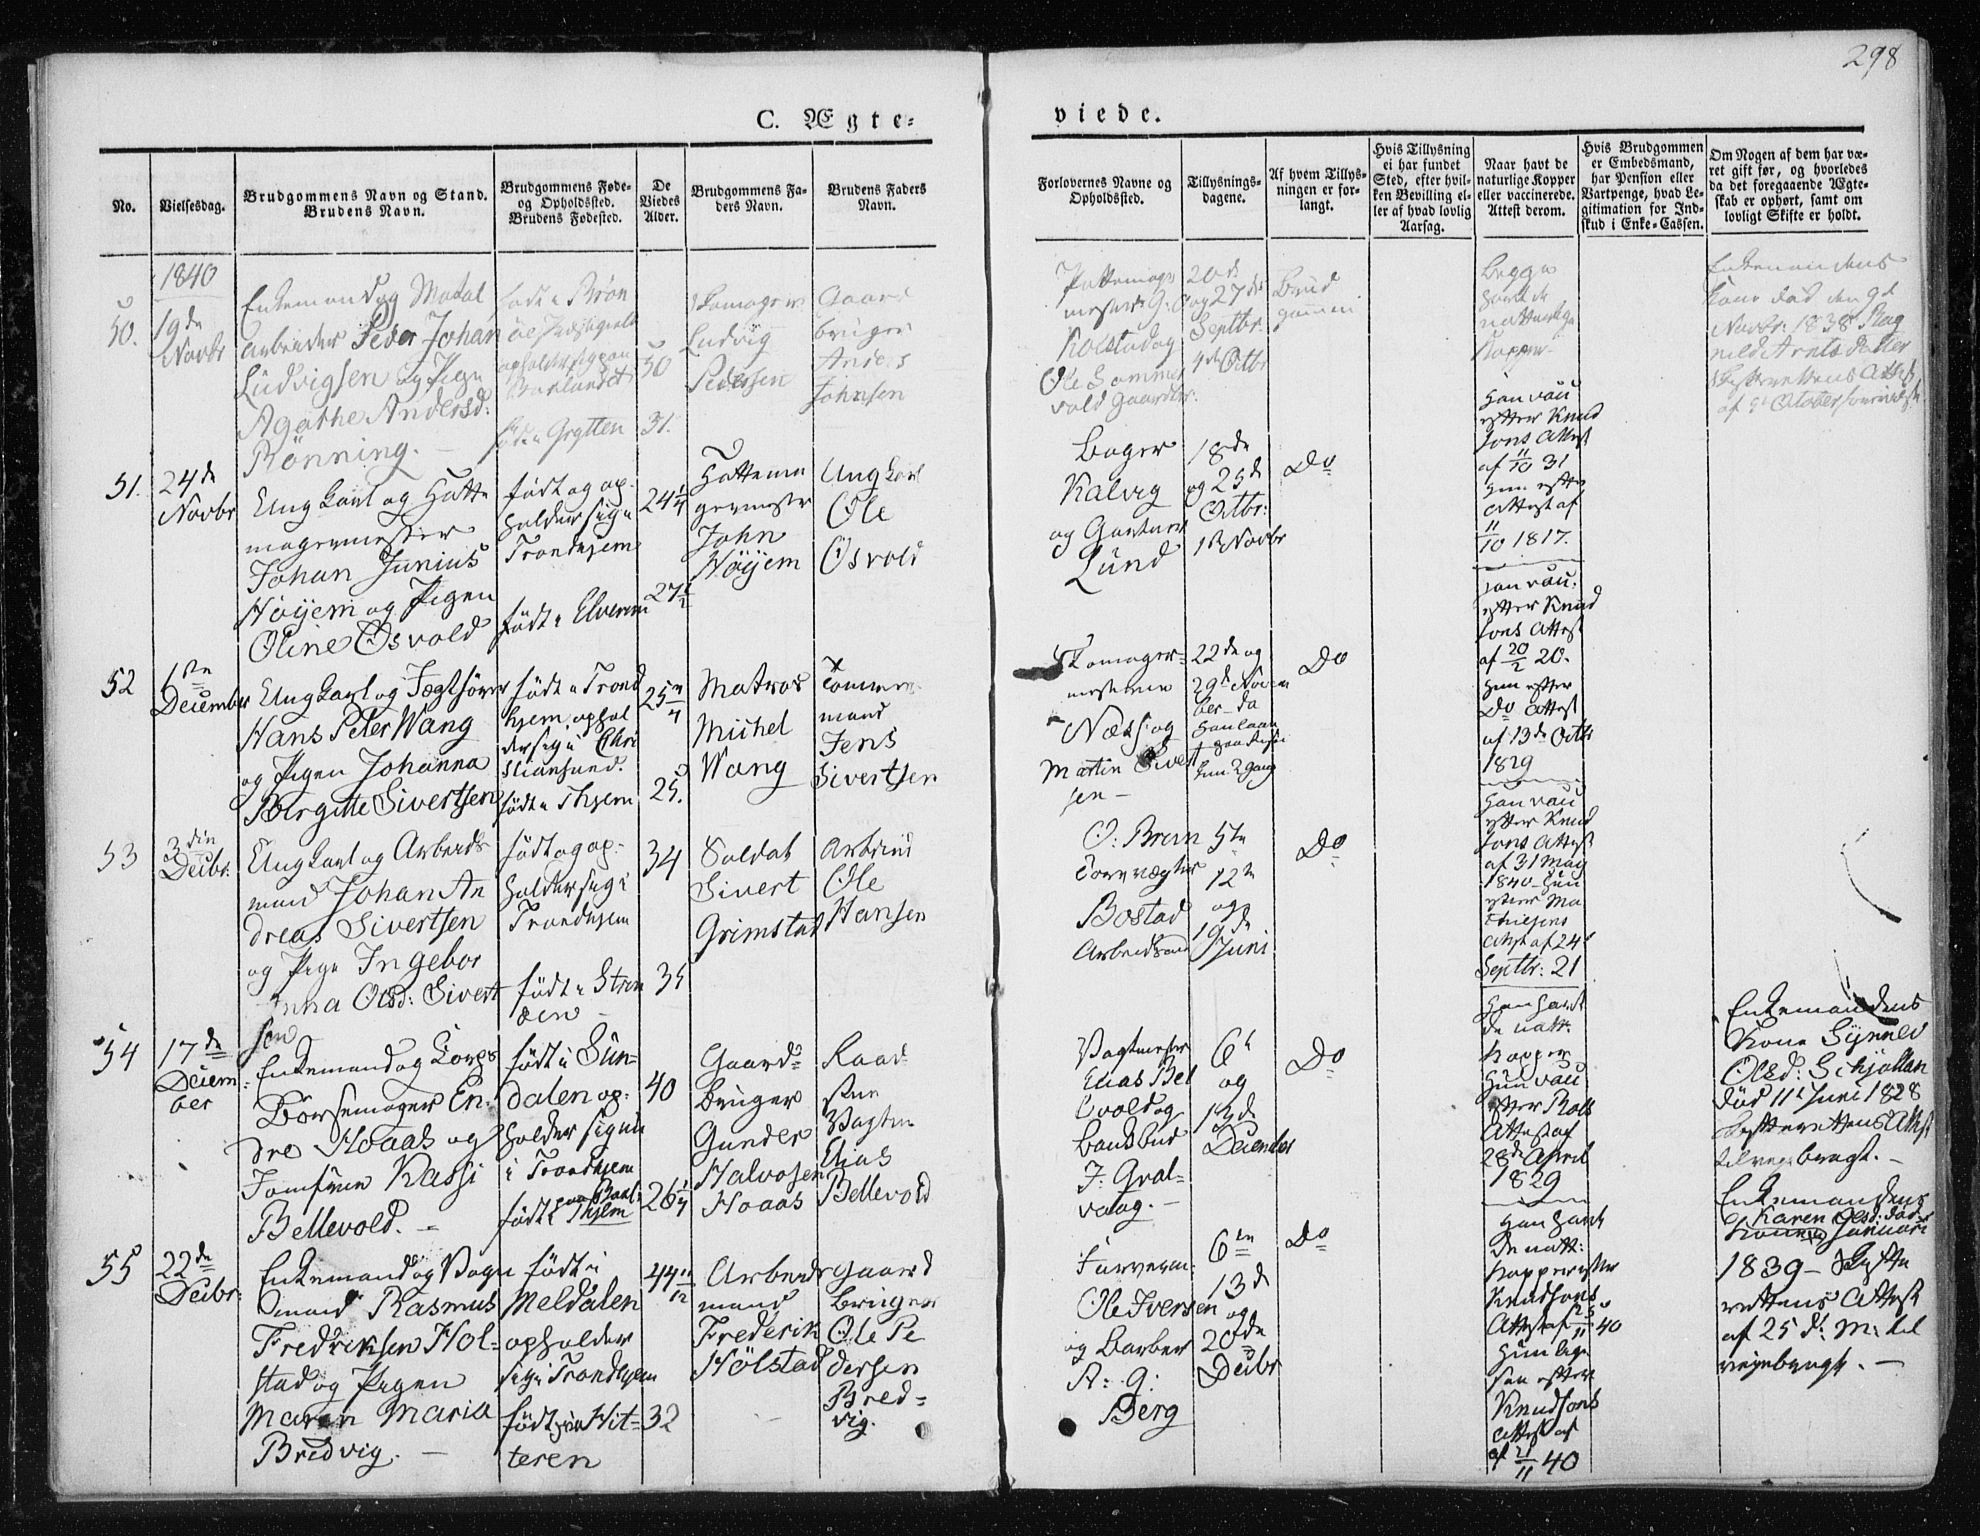 298
C. Ægte=
viede.
No.
Vielsesdag.
Brudgommens Navn og Stand.
Brudens Navn.
Brudgommens Føde-
og Opholdssted.
Brudens Fødested.
De
Viedes
Alder.
Brudgommens Fa-
ders Navn.
Brudens Faders
Navn.
Forlovernes Navne og
Opholdssted.
Tillysnings-
dagene.
Af hvem Tillys-
ningen er for-
langt.
Hvis Tillysning
ei har fundet
Sted, efter hvil-
ken Bevilling el-
ler af hvad lovlig
Aarsag.
Naar havt de
naturlige Kopper
eller vaccinerede.
Attest derom.
Hvis Brudgommen
er Embedsmand,
har Pension eller
Vartpenge, hvad Le-
gitimation for Ind-
skud i Enke-Cassen.
Om Nogen af dem har væ-
ret gift før, og hvorledes
da det foregaaende Ægte-
skab er ophørt, samt om
lovligt Skifte er holdt.
1840
50.
19de
Novbr
Enkemand og
arbeider Peder Johan
Ludvigsen og Pigen
Agathe Andersd:
Rönning.
født i Grytten
50
31.
Skomager
Ludvig
Pedersen
Gaard
bruger
Anders
Johnsen
Kolstad og
Ole Sommer
vold Gaardbr:
20de
og 27de
Septbr
4de Octbr
Brud
gommen
Begge
havt de
naturlige
Kopper
Enkemandens
Kone død den 9de
Novbr: 1838
51.
24de
Novbr
Ungkarl og Hatte
magermester
Johan Junius
Höyem og Pigen
Oline Osvold
født og op-
holder sig i
Trondhjem
født i Elverum
24¼
27½
Hattema
germester
John
Höyem
Ungkarl
Ole
Osvold
Bager
Kalvig
og Gartner
Lund
18de
og 25de
Octbr:
1te Novbr
Do
Han vacc
efter Knud
sons Attest
af 11/10 31
Hun efter
Attest af
11/10 1817.
52
1ste
December
Ungkarl og Jægtfører
Hans Peter Wang
og Pigen Johanna
Birgitte Sivertsen
født i Trond
hjem, ophol
der sig i Chri
stiansund.
født i Thjem
25
25.
Matros
Michel
Wang
Tömmer
mand
Jens
Sivertsen
Skomager-
mesterne
Næss og
Martin Sivert
sen
22de og
29de Novem
ber
Do
Han vacc.
efter Knud
sons Attest
af 20/2 20.
Hun efter
Do Attest
af 13de Octb
1829
53
3die
Decbr:
Ungkarl og Arbeids
mand Johan An
dreas Sivertsen
og Pige Ingebor
Anna Olsd: Sivert
sen
født og op-
holder sig i
Trondhjem
født i Strin
den
34
35
Soldat
Sivert
Grimstad
Arbeid
Ole
Hansen
O: Brun
Bostad
Arbeidsmand
5te
12te
og
19de
Juni
Do
Han vacc
efter Knud
sons Attest
af 31 May
1840 Hun
efter Ma
thiesens
Attest af 24
Septbr: 21
54
17de
Decem-
ber
Enkemand og Korps
Börsemager En-
dre Hoaas og
Jomfrue Kassi
Bellevold.
født i Sun-
dalen op-
holder sig
i Trondhjem
født i Thjem
40
26¼
Gaard-
bruger
Gunder
Halvorsen
Hoaas
Raad
stue
Vagten
Elias
Bellevold
Vagtmester
Elias Bel
levold og
Bankbud
J. Gral-
vaag.
6te
og
13de
December
Do
Han havt
de natt:
Kopper
Hun vacc
efter
Attest af
28de April
1829
Enkemandens
Kone Synnev
Olsd: Schjøllan
død 11te Juni 1828
Skifterettens Attest
tilveiebragt.
55
22de
Decbr:
Enkemand og Vogn
mand Rasmus
Fredriksen Hol-
stad og Pigen
Maren Maria
Bredvig.
født i
Meldalen
opholder
sig i Trondhjem
født paa Hit-
teren
44 11/12
32
Arbeids
mand
Frederik
Hölstad
Gaard
bruger
Ole Pe
dersen
Bred-
vig.
Farver
Ole Iversen
og Barber
A: G:
Berg
6te
13de
og
20de
Decbr
Do
Han havt
de natt:
Kopper efter
Knudsons
Attest af 25/11 40
Hun lige
saa efter
Knudsons
Attest af
af 21/11 40
Enkemandens
Kone Karen Olsd: død
Januari
1839 - Skifte
rettens Attest
af 25 d: M: til
veiebragt.